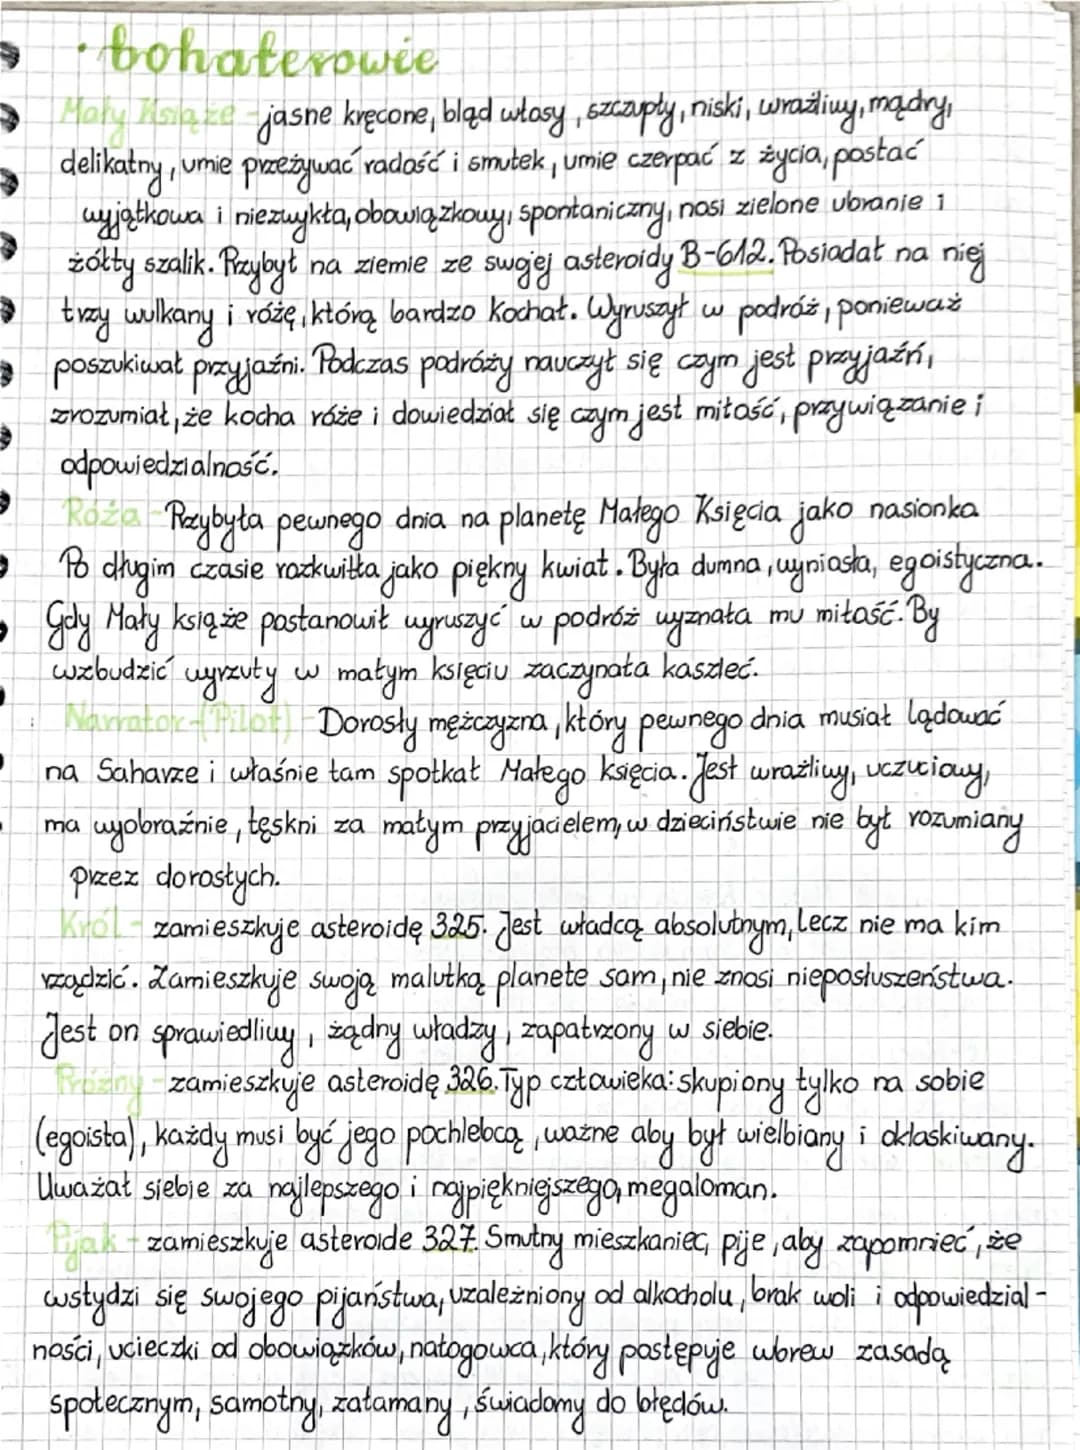 • bohaterowie
Mały Książe - jasne kręcone, bląd włosy, szczupły, niski, wrażliwy, mądry,
delikatny, umie przeżywać radość i smutek, umie czerpać z życia, postać
wyjątkowa i niezwykła, obowiązkowy, spontaniczny, nosi zielone ubranie i
żółty szalik. Przybył na ziemie ze swojej asteroidy B-612. Posiadał na niej
trzy wulkany i różę, którą bardzo kochał. Wyruszył w podróż, ponieważ
poszukiwał przyjaźni. Podczas podróży nauczył się czym jest przyjaźń,
zrozumiał, że kocha róże i dowiedział się czym jest miłość, przywiązanie i
odpowiedzialność.
Róża - Przybyła pewnego dnia na planetę Małego Księcia jako nasionka
Po długim czasie rozkwitła jako piękny kwiat. Była dumna, wyniosła, egoistyczna.
Gdy Mały książe postanowił wyruszyć w podróż wyznała mu miłość. By
wzbudzić wyrzuty w małym księciu zaczynała kaszleć.
Narrator - (Pilot) - Dorosły mężczyzna, który pewnego dnia musiał lądować
na Saharze i właśnie tam spotkał Małego księcia. Jest wrażliwy, uczuciowy,
ma wyobraźnie, tęskni za małym przyjacielem, w dzieciństwie nie był rozumiany
przez dorosłych.
Król - zamieszkuje asteroidę 325. Jest władcą absolutnym, lecz nie ma kim
rządzić. Zamieszkuje swoją malutką planete sam, nie znosi nieposłuszeństwa.
Jest on sprawiedliwy, żądny władzy, zapatrzony w siebie.
Próżny - zamieszkuje asteroidę 326. Typ człowieka: skupiony tylko na sobie
(egoista), każdy musi być jego pochlebcą, ważne aby był wielbiany i oklaskiwany.
Uważał siebie za najlepszego i najpiękniejszego, megaloman.
Pijak - zamieszkuje asteroide 327. Smutny mieszkaniec, pije, aby zapomnieć, że
wstydzi się swojego pijaństwa, uzależniony od alkocholu, brak woli i odpowiedzial-
ności, ucieczki od obowiązków, nałogowca, który postępuje wbrew zasadą
społecznym, samotny, załamany, świadomy do błędów.